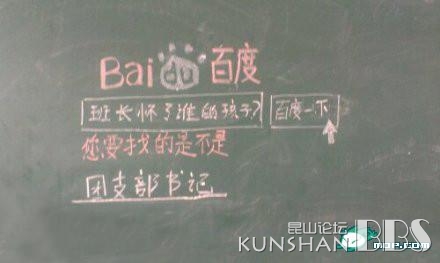 Bai du 百度
班长怀了谁的孩子? 百度一下
您要找的是不是
团支部书记
昆山论坛
KUNSHAN BBS
MOP.COM